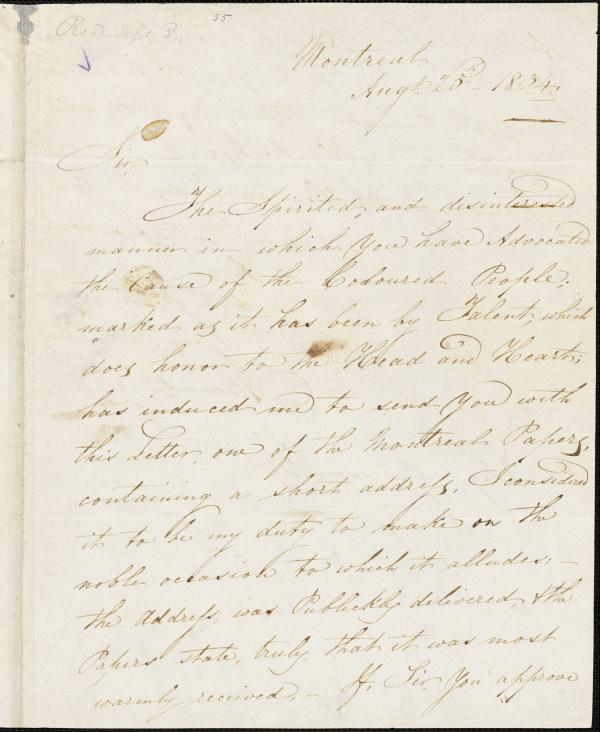 Recd. Sept. 3.
55
Montreal
Augt. 25th. 1834.
Sir,
The Spirited, and disinteressed
manner in which You have Advocated
the Cause of the Coloured People;
marked as it has been by Talent, which
does honor to the Head and Heart;
has induced me to send You with
this Letter, one of the Montreal Papers,
containing a short address, I considered
it to be my duty to make on the
noble occasion to which it alludes; –
the Address, was Publickly delivered, & the
Papers state, truly, that it was most
warmly received. – If, Sir, You approve